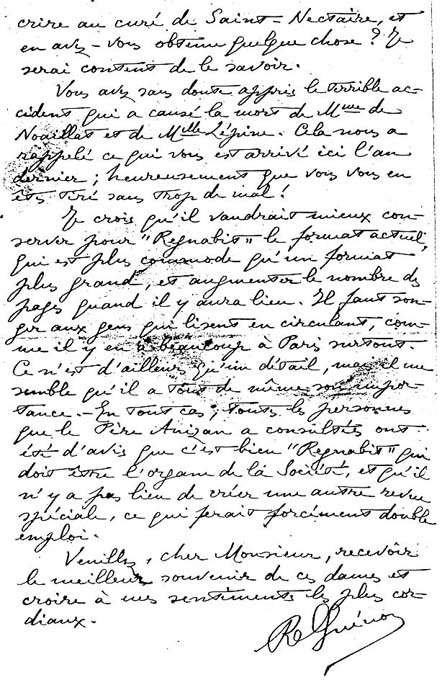 crire au curé de Saint-Nectaire, et
en avez-vous obtenu quelque chose? Je
serai content de le savoir.
Vous avez sans doute appris le terrible ac-
cident qui a causé la mort de Mme de
Noaillat et de Mlle Lépine. Cela nous a
rappelé ce qui vous est arrivé ici l'an
dernier; heureusement que vous vous en
êtes tiré sans trop de mal!
Je crois qu'il vaudrait mieux con
server pour "Regnabit" le format actuel,
qui est plus commode qu'un format
plus grand, et augmenter le nombre de
pages quand il y aura lieu. Il faut son-
ger aux gens qui lisent en circulant, com-
me il y en a beaucoup à Paris surtout.
Ce n'est d'ailleurs qu'un détail, mais il me
semble qu'il a tout de même son impor-
tance.- En tout cas, toutes les personnes
que le Père Anizan a consultées ont
été d'avis que c'est bien "Regnabit" qui
doit être l'organe de la Société, et qu'il
n'y a pas lieu de créer une autre revue
spéciale, ce qui ferait forcément double
emploi.
Veuillez, cher Monsieur, recevoir
le meilleur souvenir de ces dames et
croire à mes sentiments les plus cor-
diaux.
R. Guénon